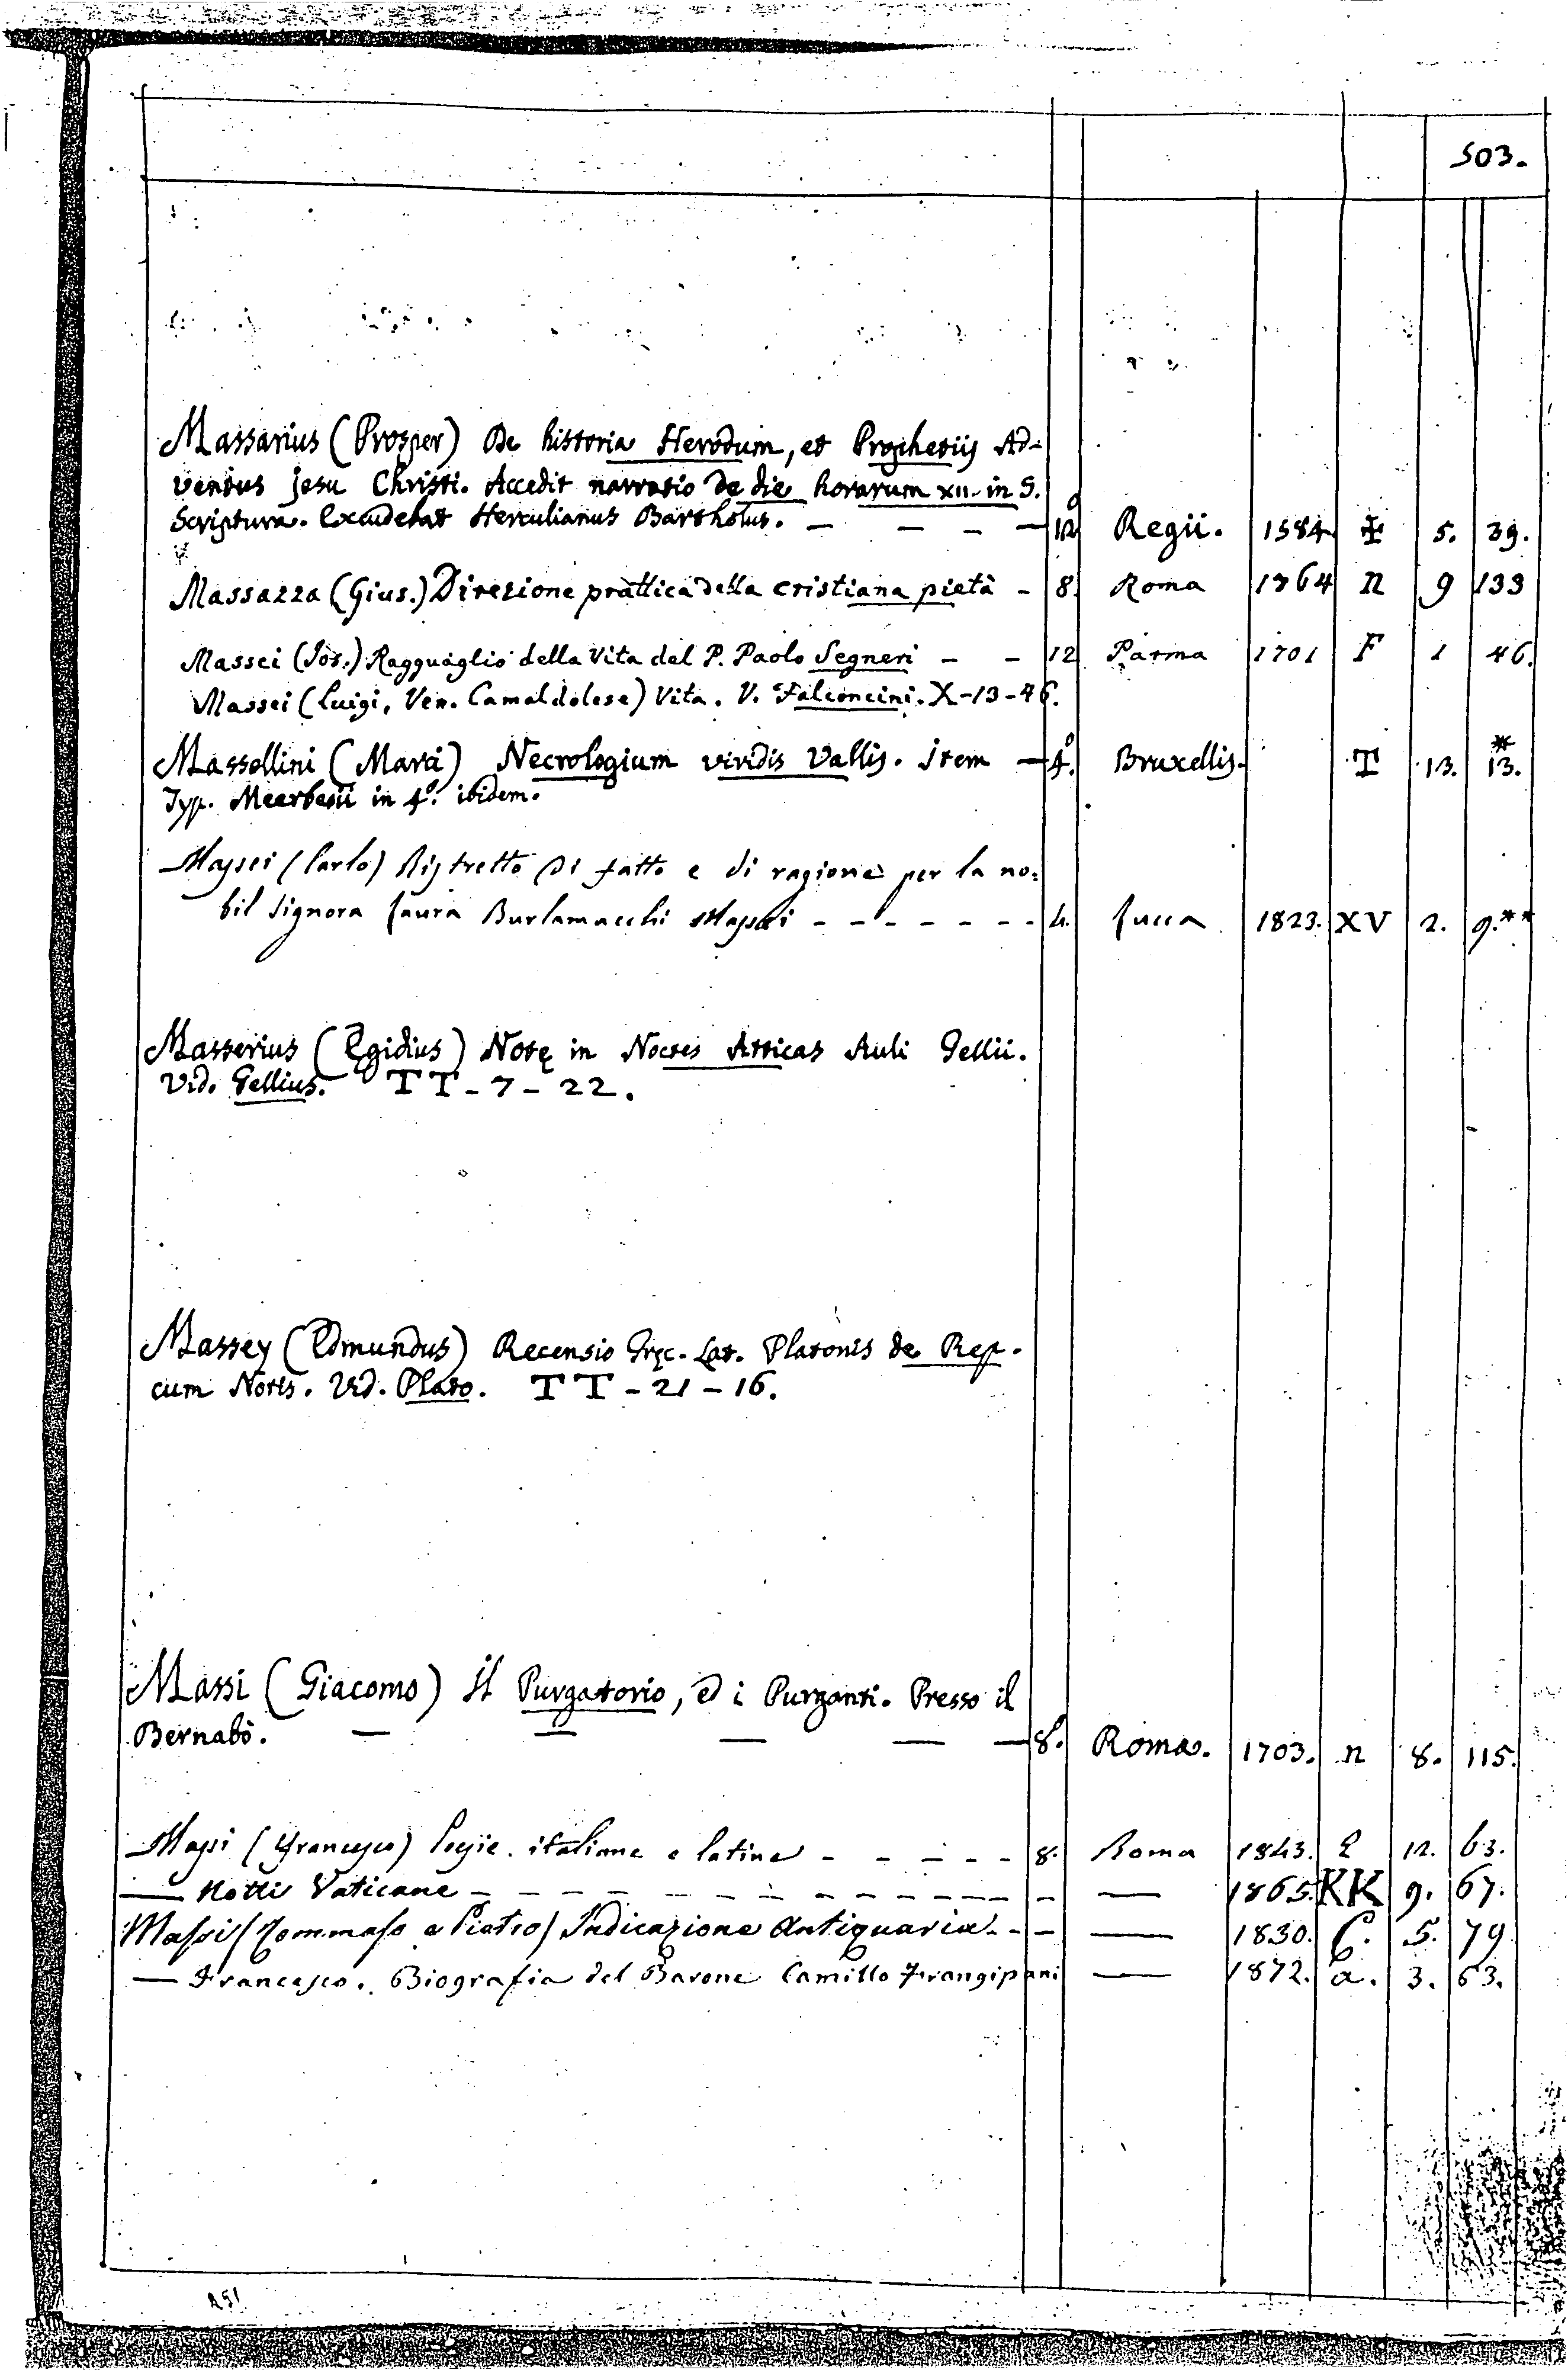 503.
Massarius (Prosper) De historia Herodum, et Prophetijs Ad-
ventus Jesu Christi. Accedit narratio de die horarum XII. in S.
Scriptura. Excudebat Herculianus Bartholus. — — — — 12º Regii. 1584 ✠ 5. 39.
Massazza (Gius.) Direzione prattica della cristiana pietà - 8. Roma 1764 n 9 133
Massei (Jos.) Ragguaglio della Vita del P. Paolo Segneri - - 12 Parma 1701 F 1 46.
Massei (Luigi, Ven. Camaldolese) Vita. V. Falconcini. X-13-46.
Massellini (Marci) Necrologium viridis Vallis. Item — 4º. Bruxellis. T 13. 13.*
Typ. Meerbesii in 4º. ibidem.
Massei (Carlo) Ristretto di fatto e di ragione per la no:
bil Signora Laura Burlamacchi Massei - - - - - - - 4. Lucca 1823. XV 2. 9.**
Masserius (Egidius) Notę in Noctes Atticas Auli Gellii.
Vid. Gellius. TT-7-22.
Massey (Edmundus) Recensio Gręc. Lat. Platonis de Rep.
cum Notis. Vid. Plato. TT-21-16.
Massi (Giacomo) Il Purgatorio, ed i Purganti. Presso il
Bernabò. — — — — — 8º. Roma. 1703. n 8. 115.
Massi (Francesco) Poesie italiane e latine - - - - - 8. Roma 1843. E 12. 63.
— Notti Vaticane - - - - - - - - - - - - — 1865. KK 9. 67.
Massi (Tommaso e Pietro) Indicazione Antiquaria - - - — 1830. C. 5. 79.
— Francesco. Biografia del Barone Camillo Frangipani — 1872. a. 3. 63.
251